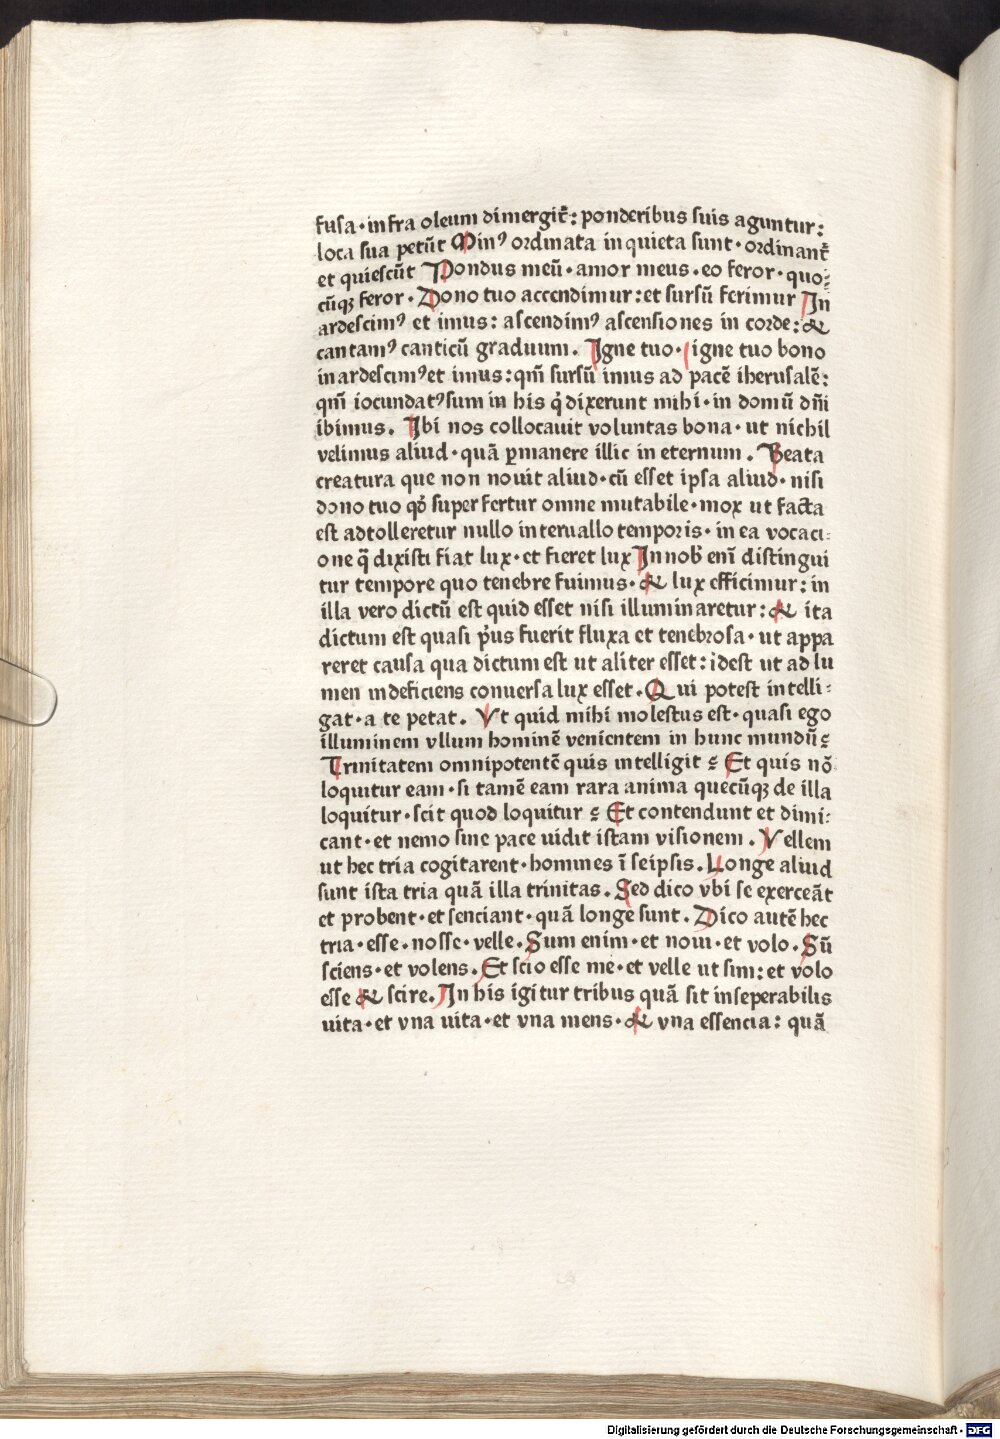 fusa·infra oleum dimergit᷑: ponderibus suis aguntur:
loca sua petūt Minꝰ ordinata in quieta sunt·ordinant᷑
et quiescūt Pondus meū·amor meus·eo feror·quo:
cūqꝫ feror·Dono tuo accendimur:et sursū ferimur In
ardescimꝰ et imus: ascendimꝰ ascensiones in corde:&
cantamꝰ canticū graduum. Igne tuo· igne tuo bono
inardescimꝰet imus:qm̄ sursū imus ad pacē iherusalē:
qm̄ iocundatꝰsum in his q̇ dixerunt mihi·in domū dn̄i
ibimus. Ibi nos collocauit voluntas bona·ut nichil
velimus aliud·quā ꝑmanere illic in eternum. Beata
creatura que non nouit aliud·cū esset ipsa aliud·nisi
dono tuo qd̓ super fertur omne mutabile·mox ut facta
est adtolleretur nullo interuallo temporis·in ea vocaci:
one q̄ dixisti fiat lux·et fieret lux In nob̓ eni̅ distingui
tur tempore quo tenebre fuimus·& lux efficimur: in
illa vero dictū est quid esset nisi illuminaretur:& ita
dictum est quasi p̓us fuerit fluxa et tenebrosa·ut appa
reret causa qua dictum est ut aliter esset:idest ut ad lu
men indeficiens conuersa lux esset.Qui potest intelli:
gat·a te petat. Vt quid mihi molestus est·quasi ego
illuminem vllum hominē venientem in hunc mundū?
Trinitatem omnipotentē quis intelligit ? Et quis nō
loquitur eam·si tamē eam rara anima quecūqꝫ de illa
loquitur·scit quod loquitur ? Et contendunt et dimi:
cant·et nemo sine pace uidit istam visionem. Vellem
ut hec tria cogitarent·homines ī seipsis.Longe aliud
sunt ista tria quā illa trinitas. Sed dico vbi se exerceāt
et probent·et senciant·quā longe sunt. Dico autē hec
tria·esse·nosse·velle.Sum enim·et noui·et volo.Sū
sciens·et volens.Et scio esse me·et velle ut sim:et volo
esse & scire.In his igitur tribus quā sit inseperabilis
uita·et vna uita·et vna mens·& vna essencia: quā
Digitalisierung gefördert durch die Deutsche Forschungsgemeinschaft - DFG